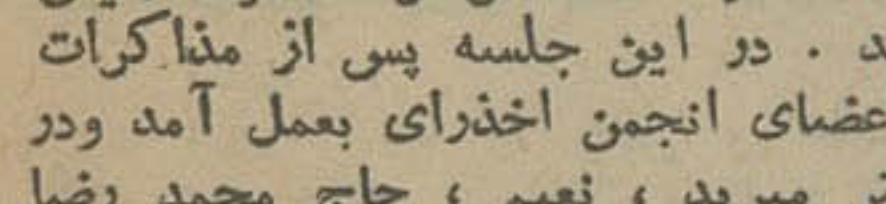 د . در این جلسه پس از مذاکرات
عضای انجمن اخذرای بعمل آمد ودر
میرید ، نعیم ، حاج محمد رضا